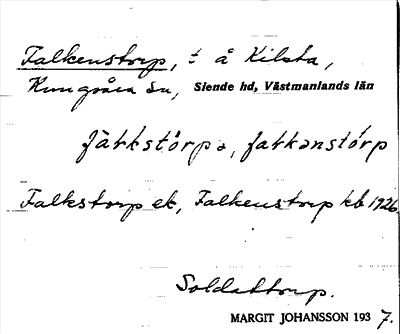 Falkenstorp, t å Kilsta,
Kungsåra sn, Siende hd, Västmanlands län
fàlkstórpə, falkənstórp
Falkstorp ek, Falkenstorp kb 1726
Soldattorp.
MARGIT JOHANSSON 1937.